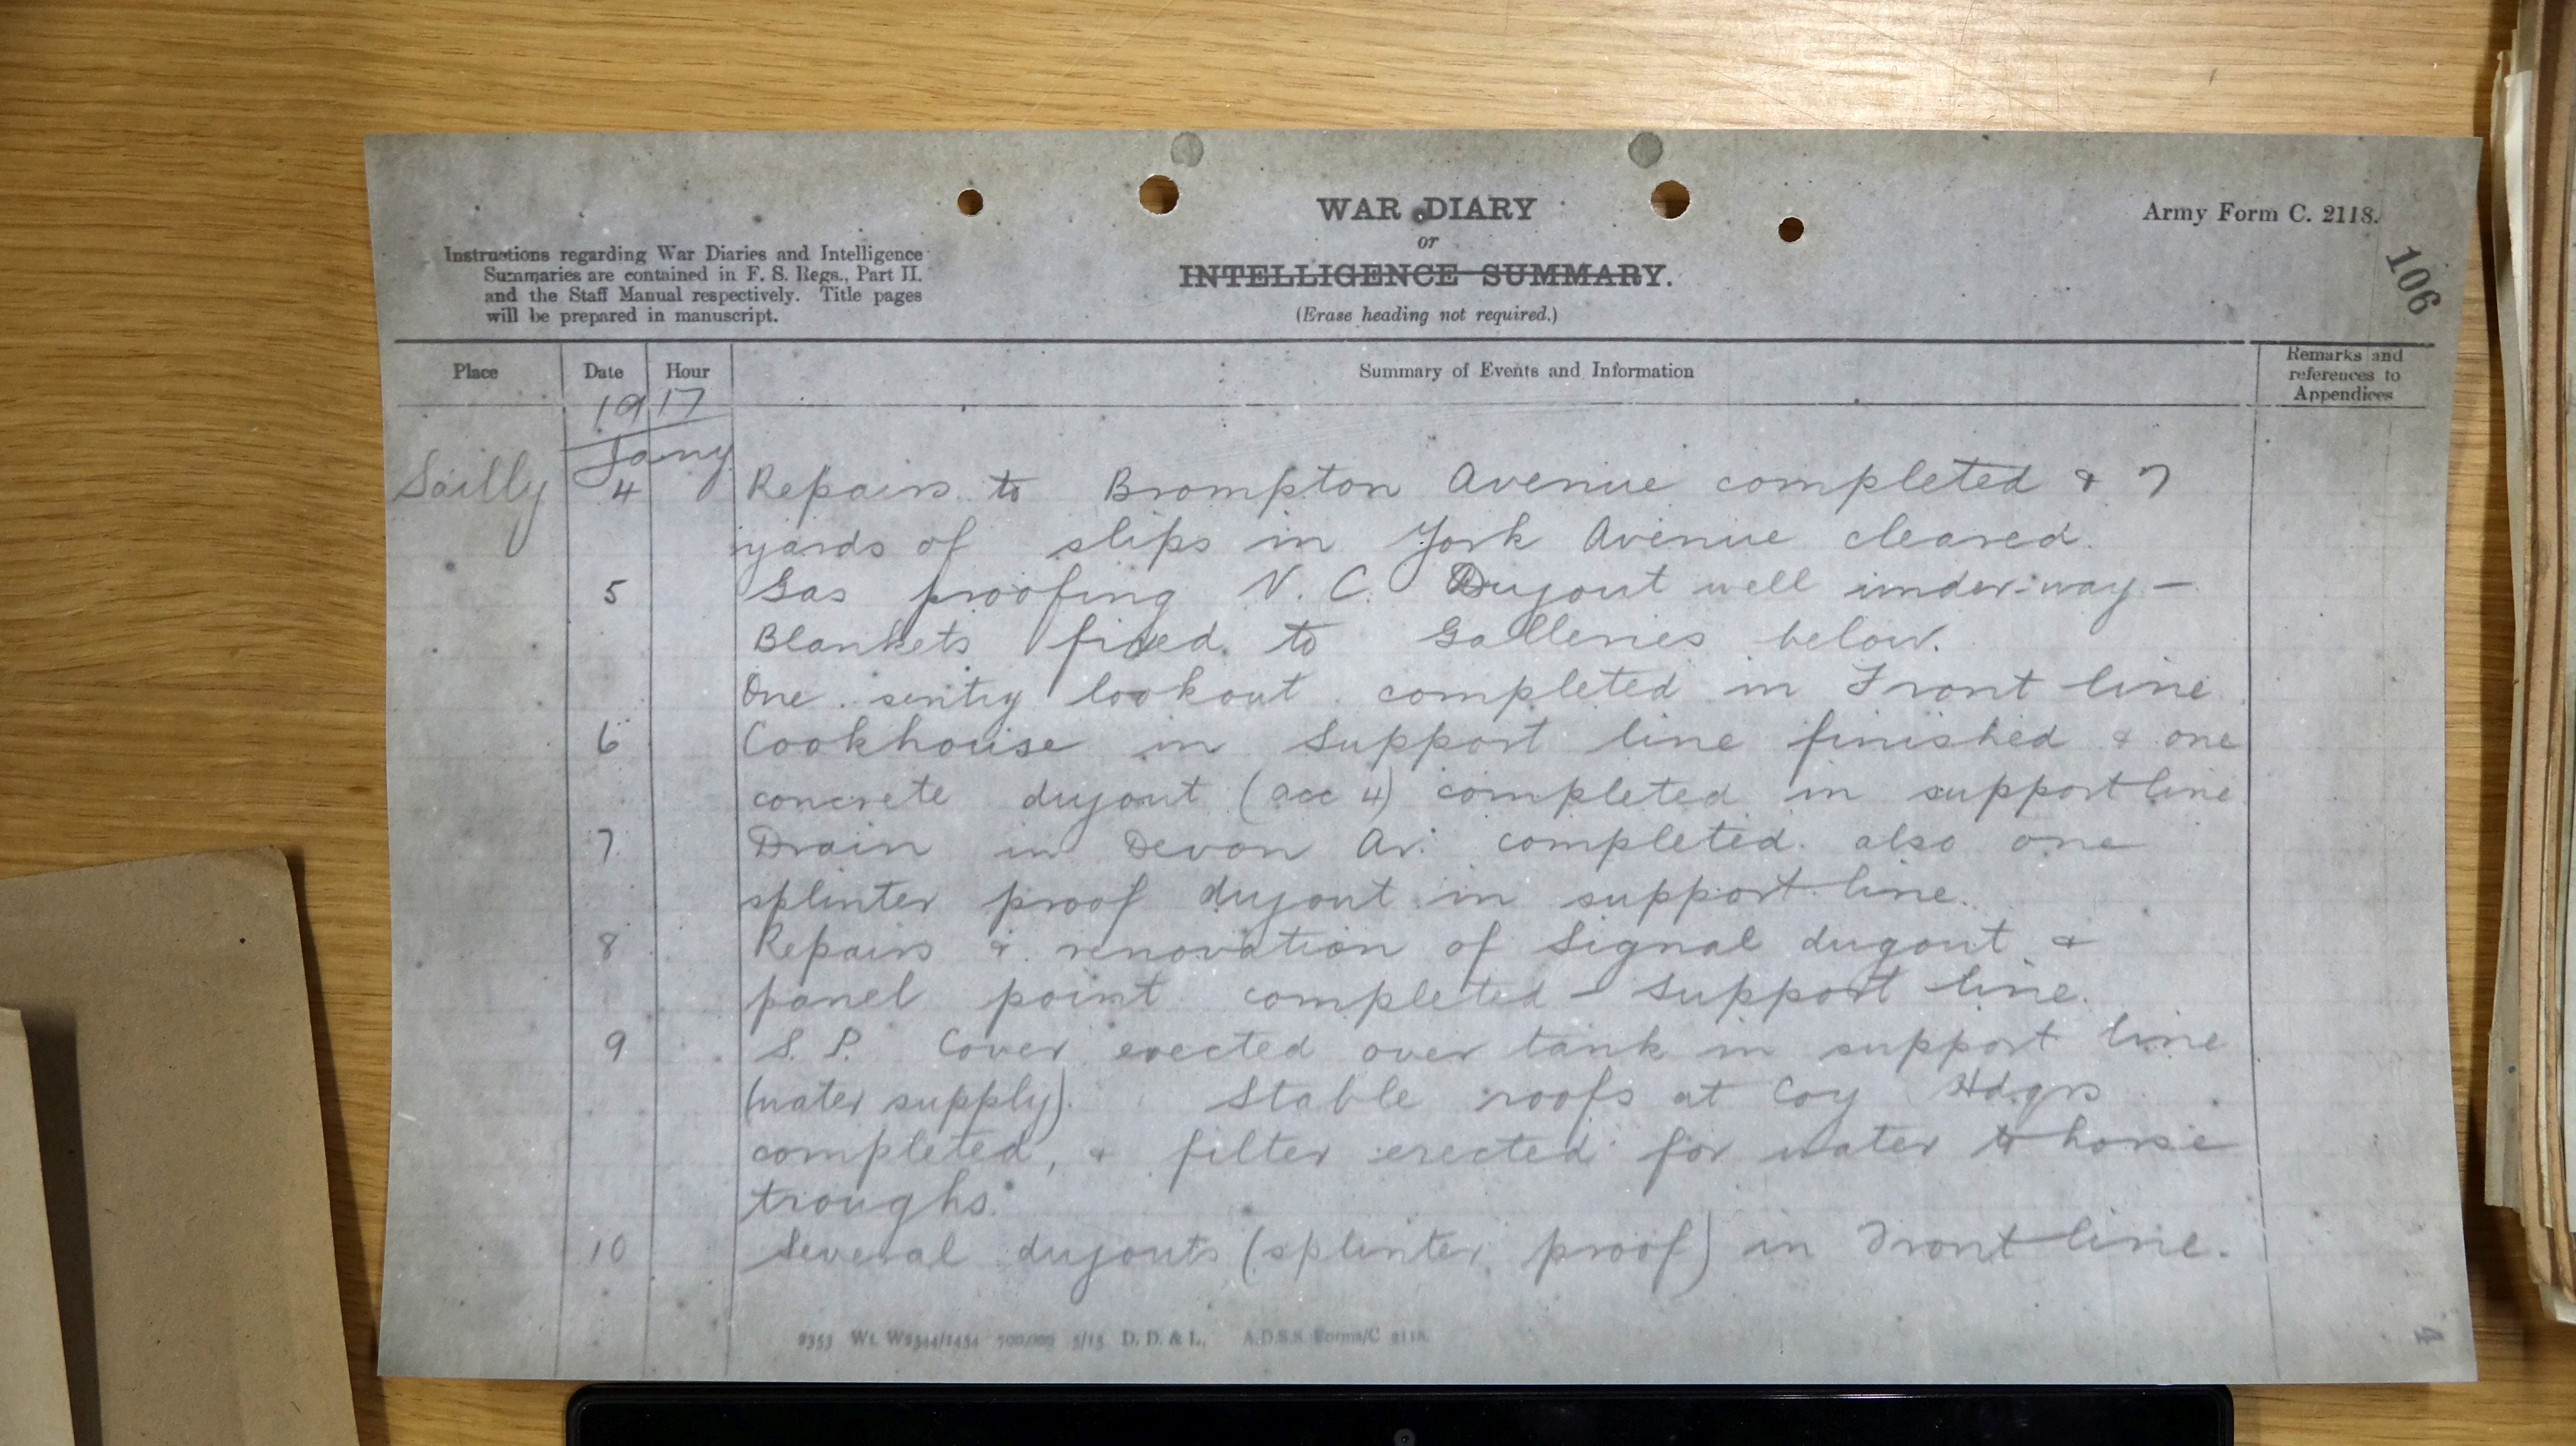 WAR DIARY
or
INTELLIGENCE SUMMARY.
(Erase heading not required.)
Army Form C. 2118.
106
Instructions regarding War Diaries and Intelligence
Summaries are contained in F. S. Regs., Part II.
and the Staff Manual respectively. Title pages
will be prepared in manuscript.
Place Date Hour Summary of Events and Information Remarks and references to Appendices
1917
Jany
Sailly 4 Repairs to Brompton Avenue completed & 7
yards of slips in York Avenue cleared.
5 Gas proofing V. C. Dugout well under-way —
Blankets fixed to Galleries below.
One sentry lookout completed in Front line
6 Cookhouse in Support line finished & one
concrete dugout (acc 4) completed in support line
7 Drain in Devon Av. completed. also one
splinter proof dugout in support line.
8 Repairs & renovation of Signal dugout &
panel point completed - Support line.
9 S. P. Cover erected over tank in support line
(water supply). Stable roofs at Coy Hdqrs
completed, & filter erected for water to horse
troughs.
10 Several dugouts (splinter proof) in Front line.
5/15 D. D. & L. A.D.S.S. Forms/C 2118.
4